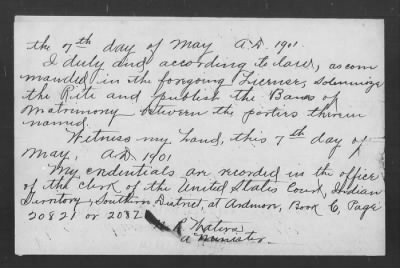 the 7th day of May A.D. 1901.
I duly and according to law, as com
manded in the foregoing License, solemnize
the Rite and publish the Bans of
Matrimony between the parties therein
named.
Witness my hand, this 7th day of
May, A.D. 1901
My credentials are recorded in the office
of the clerk of the United States Court, Indian
Territory, Southern District, at Ardmore, Book C, Page
20821 or 2082
R
a Minister.